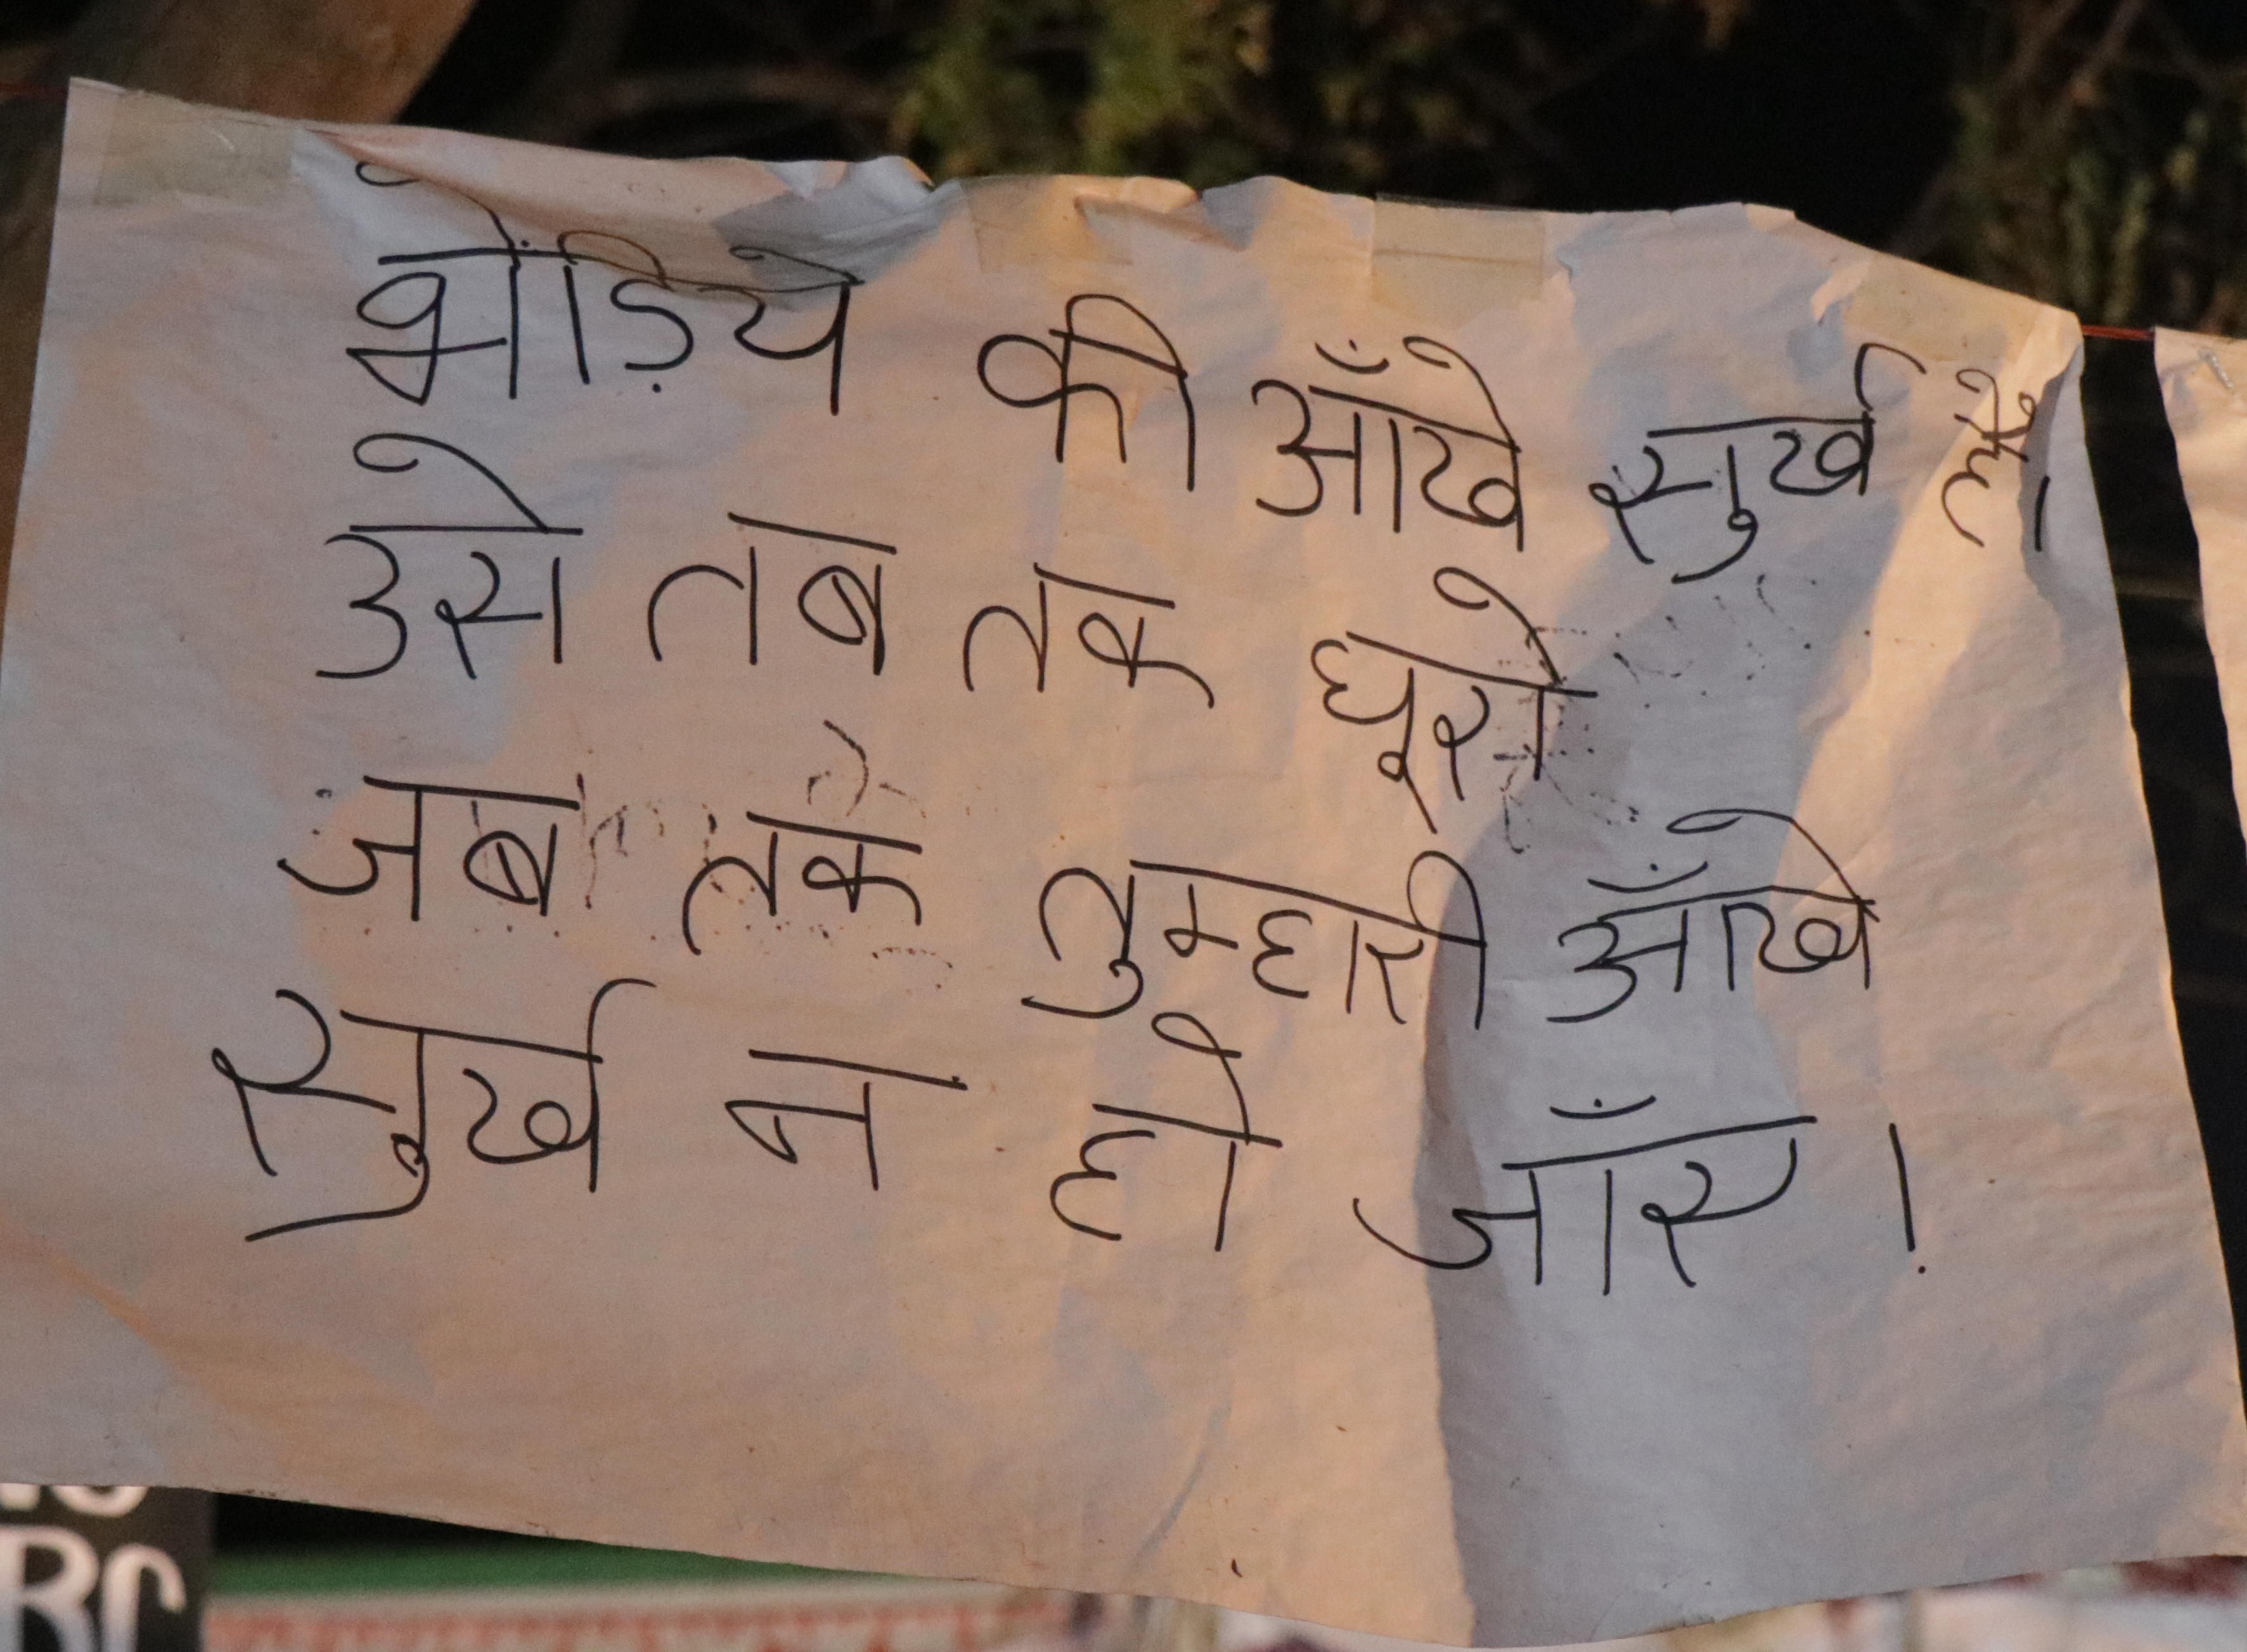 भेड़िये की आँखे सुर्ख हैं।
उसे तब तक घूरो
जब तक तुम्हारी आँखे
सुर्ख न हो जाँए।